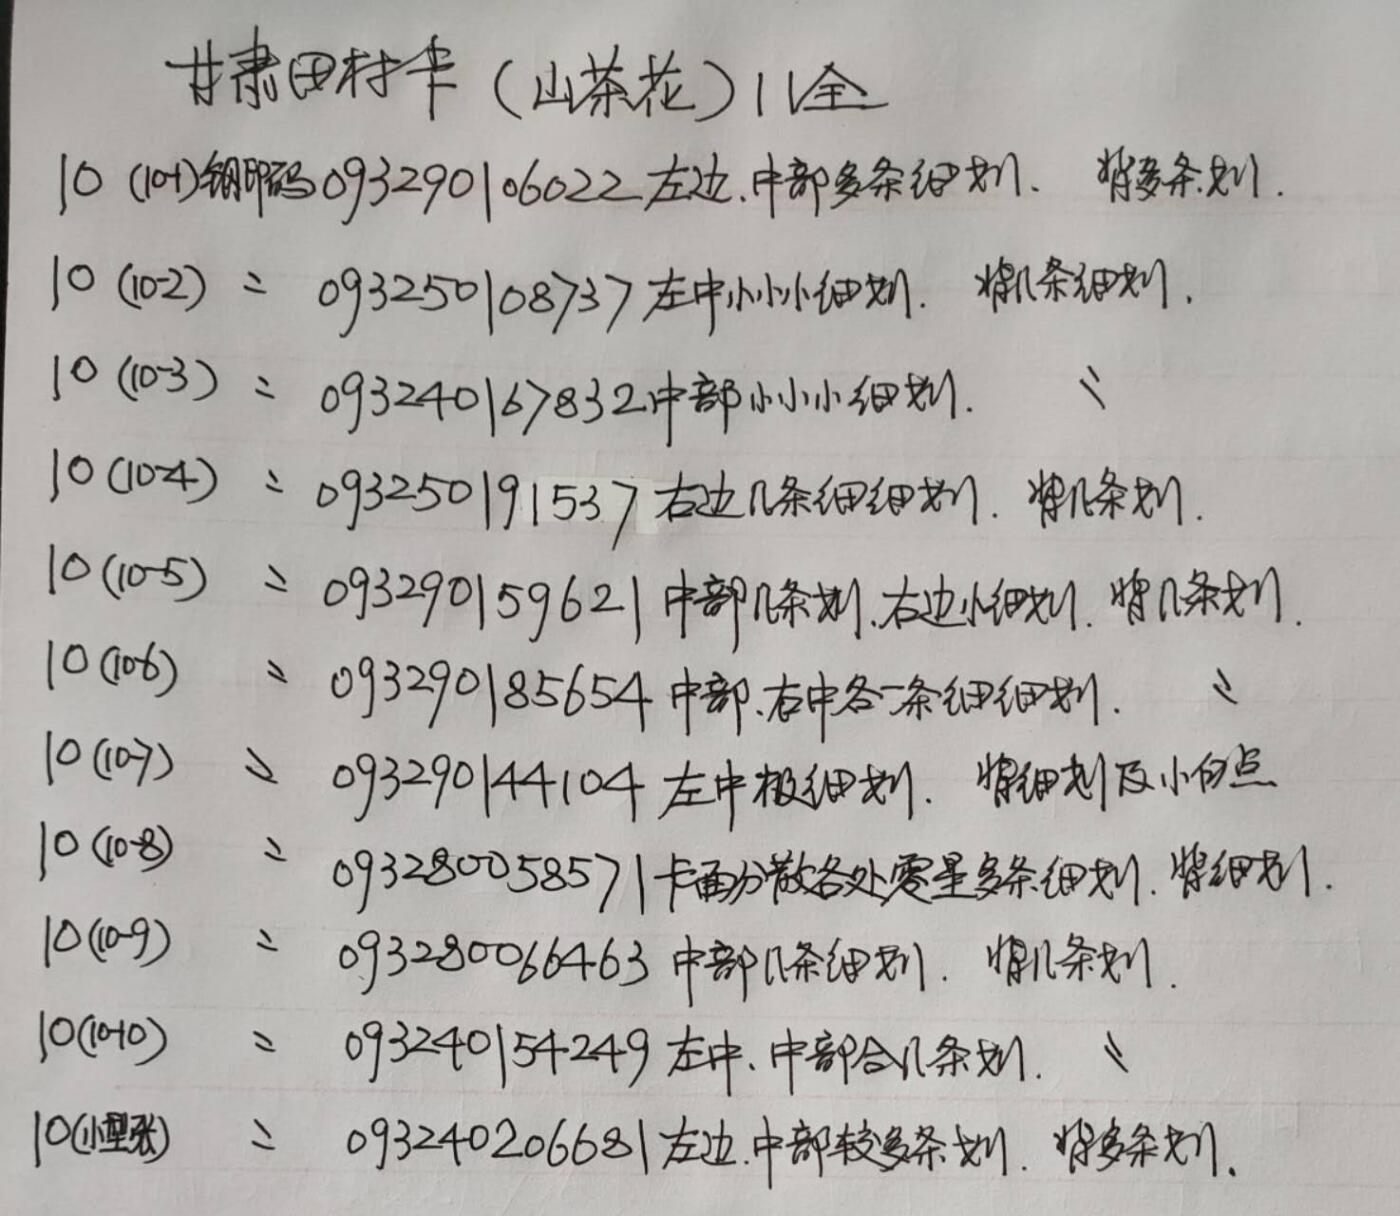 甘肃田村卡（山茶花）11全
10 (10-1)钢印码093290106022左边.中部多条细划. 背多条划.
10 (10-2) 〃 093250108737左中小小小细划. 背几条细划.
10 (10-3) 〃 093240167832中部小小小细划. 〃
10 (10-4) 〃 093250191537右边几条细细划. 背几条划.
10 (10-5) 〃 093290159621中部几条划.右边小细划. 背几条划.
10 (10-6) 〃 093290185654中部.右中各一条细细划. 〃
10 (10-7) 〃 093290144104左中极细划. 背细划及小白点
10 (10-8) 〃 093280058571卡面分散各处零星多条细划. 背细划.
10 (10-9) 〃 093280066463中部几条细划. 背几条划.
10 (10-10) 〃 093240154249左中.中部合几条划. 〃
10 (小型张) 〃 093240206681左边.中部较多条划. 背多条划.